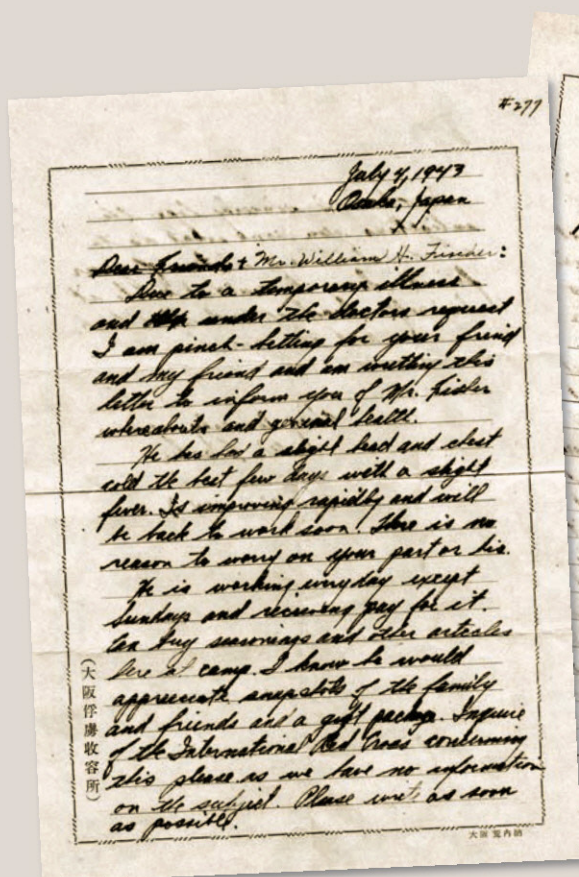 #277
July 4, 1943
Osaka, Japan
Dear Friends + Mr. William H. Finder:
Due to a temporary illness
and under the doctors request
I am pinch-hitting for your friend
and my friend and am writting this
letter to inform you of Mr. Fisher
whereabouts and general health.
He has had a slight head and chest
cold the best few days with a slight
fever. Is improving rapidly and will
be back to work soon. There is no
reason to worry on your part or his.
He is working everyday except
Sundays and recieving pay for it.
Can buy seasonings and other articles
here at camp. I know he would
appreciate snapshots of the family
and friends and a gift package. Inquire
of the International Red Cross concerning
this please as we have no information
on the subject. Please write as soon
as possible.
(大阪俘虜收容所)